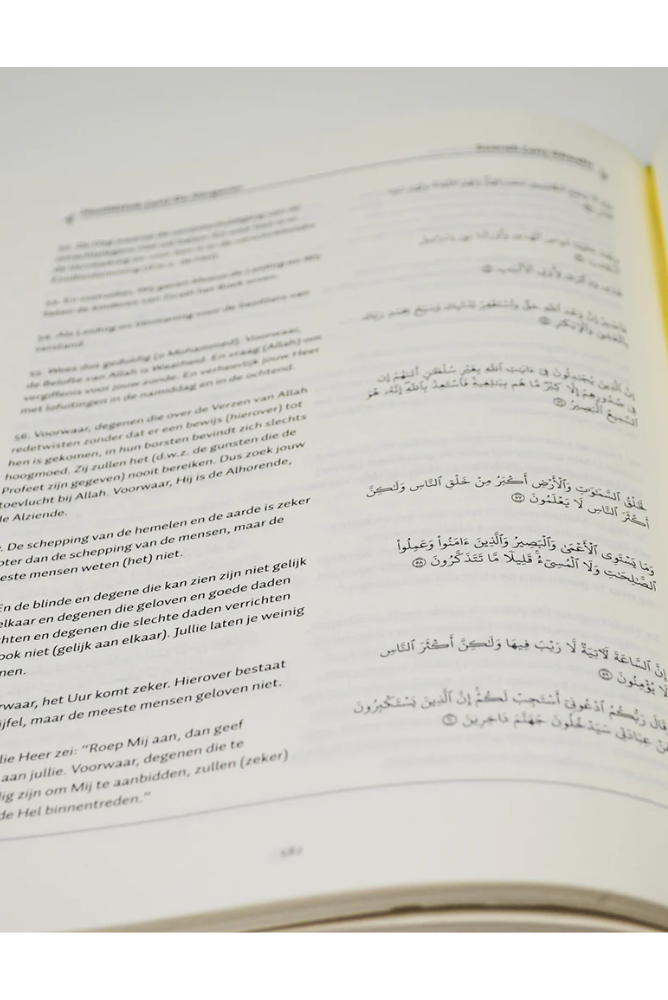 54. Als Leiding en Vermaning voor de bezitters van
verstand.
55. Wees dus geduldig (o Mohammed). Voorwaar,
de Belofte van Allah is Waarheid. En vraag (Allah) om
vergiffenis voor jouw zonde. En verheerlijk jouw Heer
met lofuitingen in de namiddag en in de ochtend.
56. Voorwaar, degenen die over de Verzen van Allah
redetwisten zonder dat er een bewijs (hierover) tot
hen is gekomen, in hun borsten bevindt zich slechts
hoogmoed. Zij zullen het (d.w.z. de gunsten die de
Profeet zijn gegeven) nooit bereiken. Dus zoek jouw
toevlucht bij Allah. Voorwaar, Hij is de Alhorende,
de Alziende.
. De schepping van de hemelen en de aarde is zeker
oter dan de schepping van de mensen, maar de
este mensen weten (het) niet.
En de blinde en degene die kan zien zijn niet gelijk
elkaar en degenen die geloven en goede daden
chten en degenen die slechte daden verrichten
ook niet (gelijk aan elkaar). Jullie laten je weinig
nen.
rwaar, het Uur komt zeker. Hierover bestaat
ijfel, maar de meeste mensen geloven niet.
lie Heer zei: “Roep Mij aan, dan geef
aan jullie. Voorwaar, degenen die te
dig zijn om Mij te aanbidden, zullen (zeker)
de Hel binnentreden.”
هُدًى وَذِكْرَىٰ لِأُو۟لِى ٱلْأَلْبَٰبِ
فَٱصْبِرْ إِنَّ وَعْدَ ٱللَّهِ حَقٌّ وَٱسْتَغْفِرْ لِذَنۢبِكَ وَسَبِّحْ بِحَمْدِ رَبِّكَ
بِٱلْعَشِىِّ وَٱلْإِبْكَٰرِ ٥٥
إِنَّ ٱلَّذِينَ يُجَٰدِلُونَ فِىٓ ءَايَٰتِ ٱللَّهِ بِغَيْرِ سُلْطَٰنٍ أَتَىٰهُمْ إِن
فِى صُدُورِهِمْ إِلَّا كِبْرٌ مَّا هُم بِبَٰلِغِيهِ فَٱسْتَعِذْ بِٱللَّهِ إِنَّهُۥ هُوَ
ٱلسَّمِيعُ ٱلْبَصِيرُ ٥٦
لَخَلْقُ ٱلسَّمَٰوَٰتِ وَٱلْأَرْضِ أَكْبَرُ مِنْ خَلْقِ ٱلنَّاسِ وَلَٰكِنَّ
أَكْثَرَ ٱلنَّاسِ لَا يَعْلَمُونَ ٥٧
وَمَا يَسْتَوِى ٱلْأَعْمَىٰ وَٱلْبَصِيرُ وَٱلَّذِينَ ءَامَنُوا۟ وَعَمِلُوا۟
ٱلصَّٰلِحَٰتِ وَلَا ٱلْمُسِىٓءُ قَلِيلًا مَّا تَتَذَكَّرُونَ ٥٨
إِنَّ ٱلسَّاعَةَ لَءَاتِيَةٌ لَّا رَيْبَ فِيهَا وَلَٰكِنَّ أَكْثَرَ ٱلنَّاسِ
لَا يُؤْمِنُونَ ٥٩
وَقَالَ رَبُّكُمُ ٱدْعُونِىٓ أَسْتَجِبْ لَكُمْ إِنَّ ٱلَّذِينَ يَسْتَكْبِرُونَ
عَنْ عِبَادَتِى سَيَدْخُلُونَ جَهَنَّمَ دَاخِرِينَ ٦٠